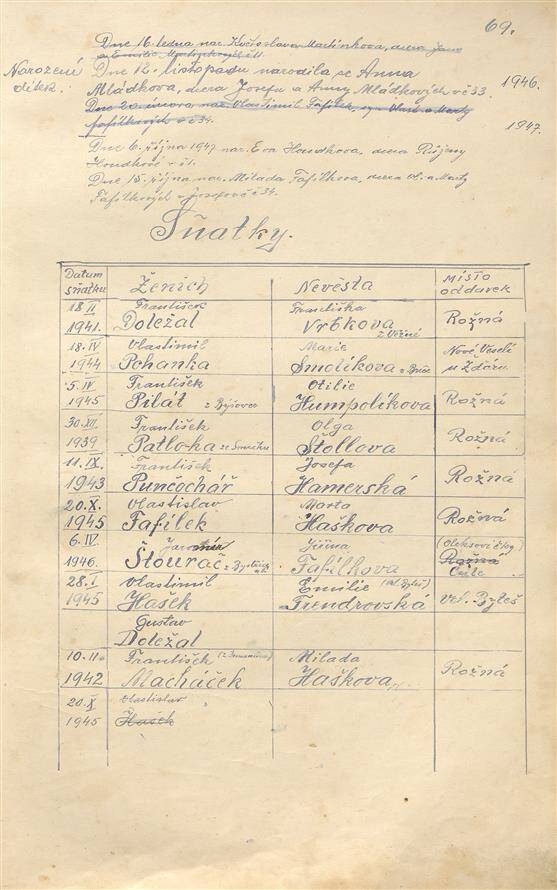 69.
Dne 16. ledna nar. Květoslava Martinkova, dcera Jana
a Emilie Martinkových č 11.
Narození
dítek.
Dne 12. listopadu narodila se Anna
Mládkova, dcera Josefa a Anny Mládkových vč 33.
1946.
Dne 20. února nar. Vlastimil Fafílek, syn Vlast. a Marty
Fafílkových vč 34.
1947.
Dne 6. října 1947 nar. Eva Houdkova, dcera Růženy
Houdkové v č 1.
Dne 15. října nar. Milada Fafílkova, dcera Vl. a Marty
Fafílkových č 34.
Sňatky.
Datum
sňatku
Ženich
Nevěsta
místo
oddavek
18 II
František
Františka
1941.
Doležal
Vrbkova
z Věžné
Rožná
18. IV
Vlastimil
Marie
Nové Veselí
1944
Pohanka
Smolíkova
u Žďáru
5. IV
František
Otilie
1945
Pilát
Humpolíkova
Rožná
30. XII.
František
Olga
1939
Patloka
Stollova
Rožná
11. IX.
František
Josefa
1943
Punčochář
Hamerská
Rožná
20. X.
Vlastislav
Marta
1945
Fafílek
Haškova
Rožná
6. IV
Jaroslav
Jiřina
1946.
Štourač z Bystřice
Fafílkova
Rožná
28. I
Vlastimil
Emilie
1945
Hašek
Trendrovská
vel. Byteš
Gustav
Doležal
10. II.
František
Milada
1942
Macháček
Haškova
Rožná
20. X
Vlastislav
1945
Hašek